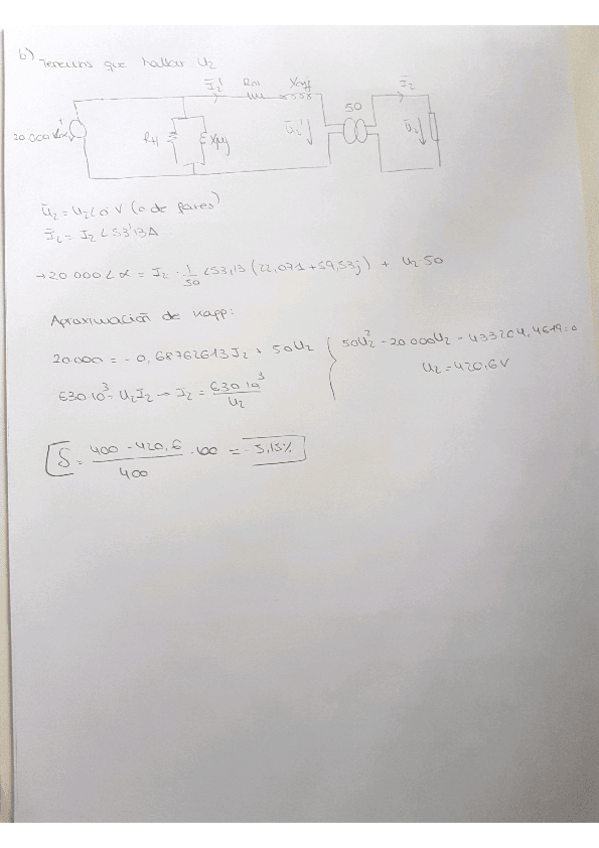 b) Tenemos que hallar U2
I2' Rcc Xccj I2
50
20 000∠α RH Xμj U2' U2
U2 = U2∠0° V (0 de fases)
I2 = I2 ∠53'13 A
→ 20 000∠α = I2 · 1/50 ∠53,13 (22,071 + 59,53j) + U2 50
Aproximación de Kapp:
20000 = - 0,68762613 I2 + 50U2
630·10^3 = U2 I2 → I2 = 630·10^3 / U2
50U2^2 - 20 000U2 - 433204,4619 = 0
U2 = 420,6 V
δ = (400 - 420,6) / 400 · 100 = - 5,15%